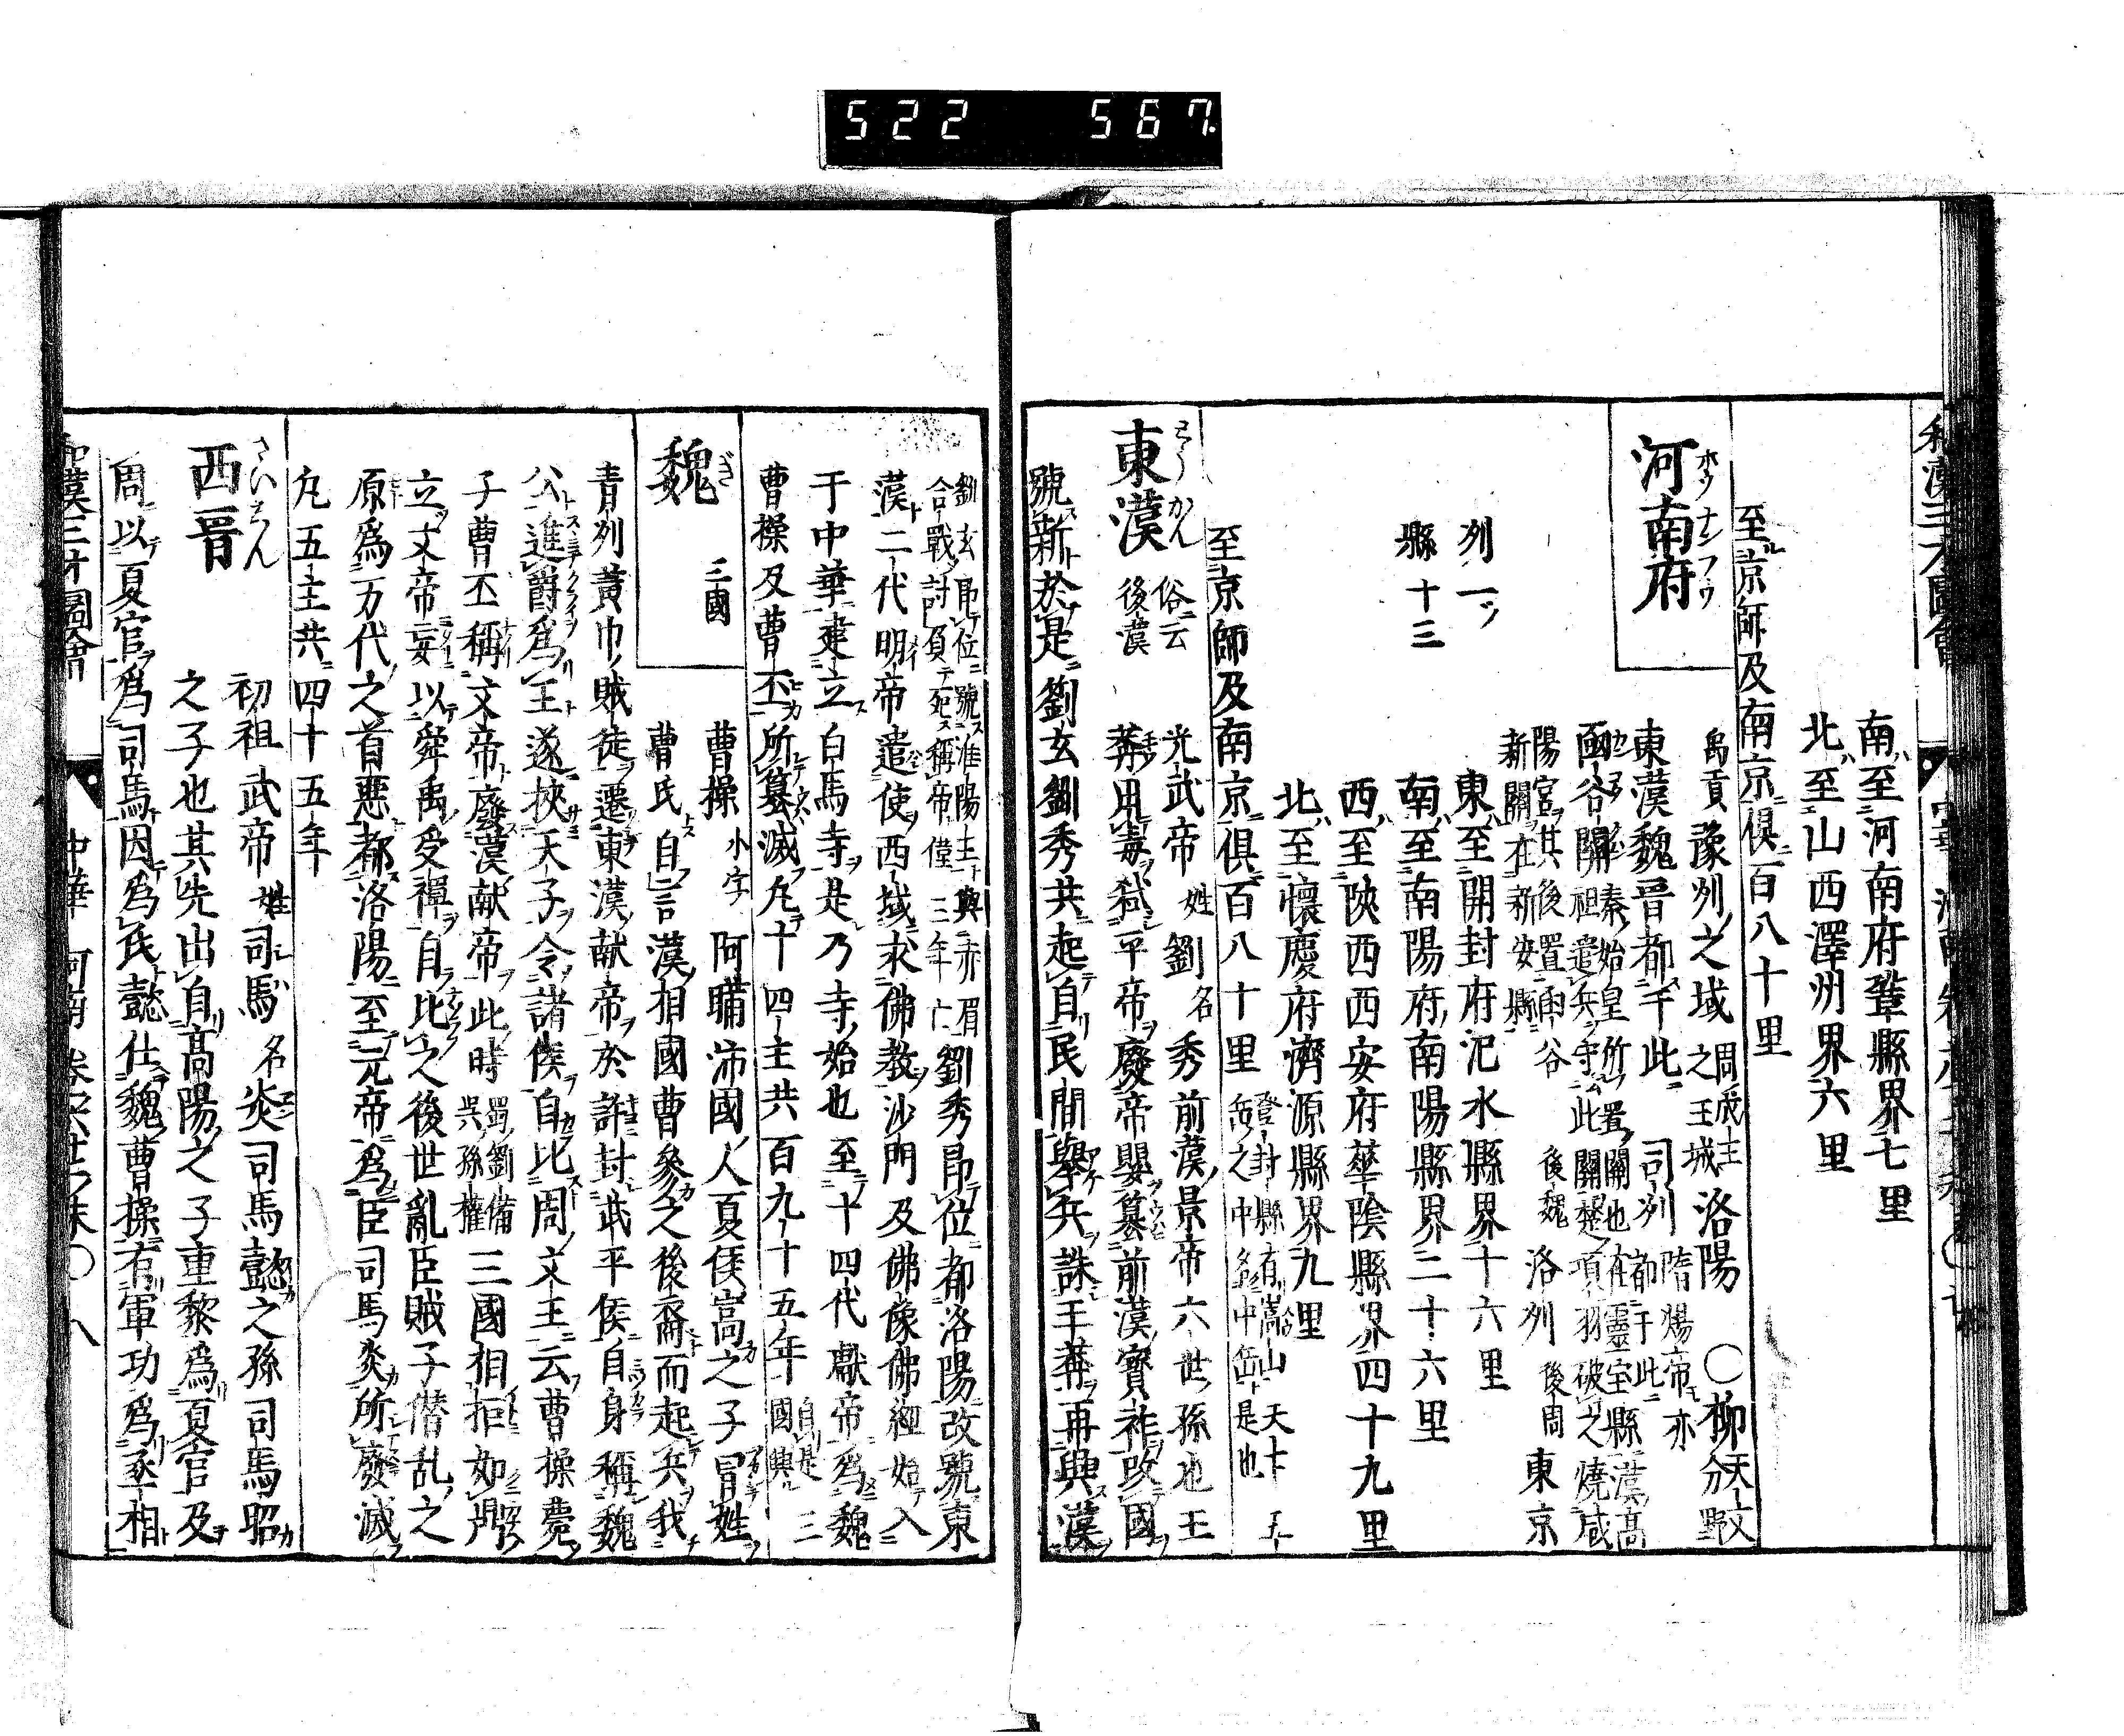 522 567
南至河南府鞏縣界七里
北至山西澤州界六里
至京師及南京俱二百八十里
河南府
禹貢豫州之域 周成王之王城 洛陽 ○柳 天文分野
東漢魏晉都于此 司州 隋煬帝亦都于此
函谷關 秦始皇所置關也在靈宝縣漢高祖遣兵守此關楚項羽破之燒咸
陽宮其後置函谷新關在新安縣 後魏 洛州 後周 東京
州一
縣十三
東至開封府汜水縣界十六里
南至南陽府南陽縣界二十六里
西至陝西西安府華陰縣界四十九里
北至懷慶府濟源縣界九里
至京師及南京俱百八十里 登封縣有嵩山
東漢 俗云後漢
光武帝 姓劉名秀前漢景帝六世孫也王
莽用毒弒平帝廢帝嬰篡前漢寳祚改國
號新於是劉玄劉秀共起自民間舉兵誅王莽再興漢
劉玄即位號淮陽王與赤眉合戰討負死稱帝僅三年亡 劉秀即位都洛陽改號東
漢二代明帝遣使西域求佛教沙門及佛像佛經始入
于中華建立白馬寺是乃寺始也至十四代獻帝爲魏
曹操及曹丕所篡滅凡十四主共百九十五年 自是三國興
魏 三國
曹操 小字 阿瞞沛國人夏侯嵩之子冒姓
曹氏自言漢相國曹參之後裔而起兵我
青州黃巾賊徒遷東漢献帝於許封武平侯自身稱魏
公進爵爲王遂挾天子令諸侯自比周文王云曹操薨
子曹丕稱文帝廢漢献帝此時 蜀劉備吳孫權 三國相拒如鼎
立文帝妄以舜禹受禪自比之後世亂臣賊子僣乱之
原爲万代之首悪都洛陽至元帝爲臣司馬炎所廢滅
凡五主共四十五年
西晉
初祖武帝 姓司馬名炎司馬懿之孫司馬昭
之子也其先出自高陽之子重黎爲夏官及
周以夏官爲司馬因爲氏懿仕魏曹操有軍功爲丞相
和漢三才圖會 中華 河南 卷六十二之末○八